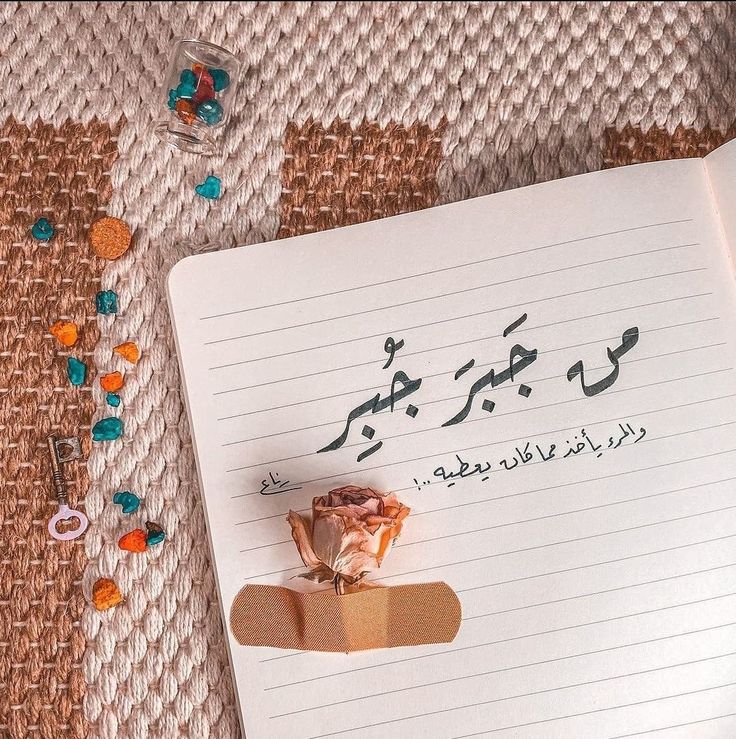 من جَبَرَ جُبِر
والمرء يأخذ مما كان يعطيه..!